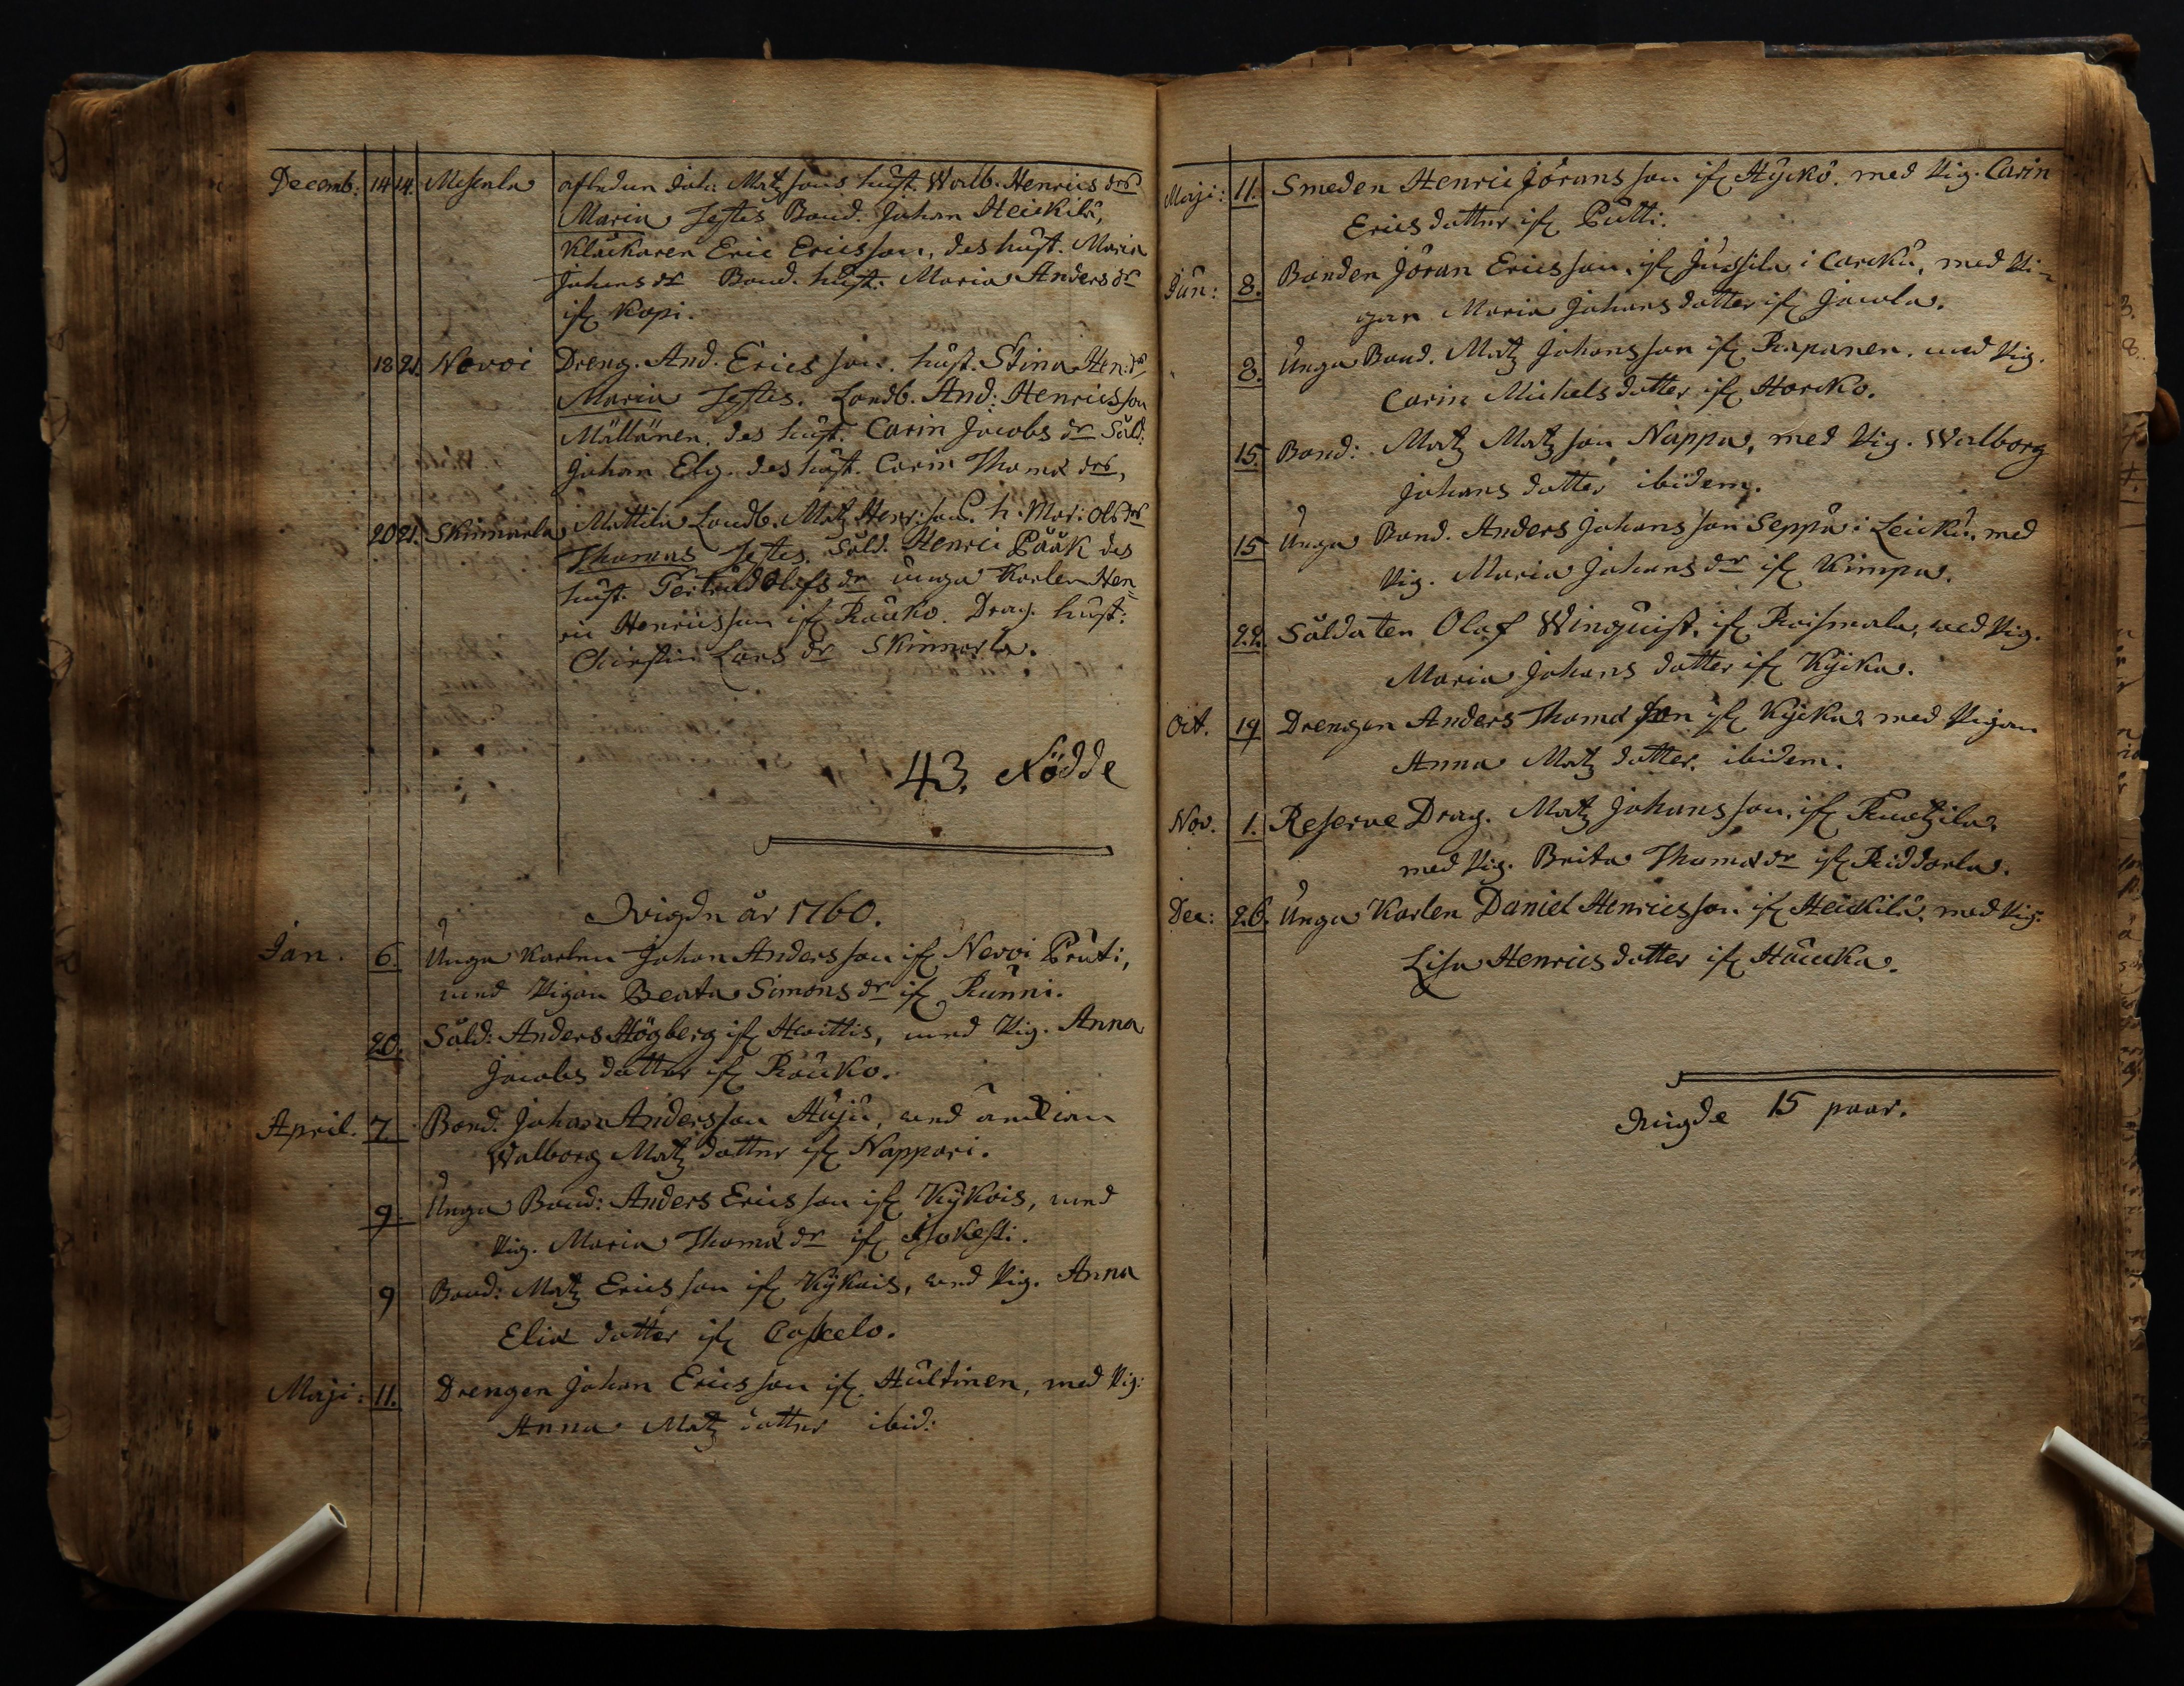 Decemb: 14 14. Misenla afledun Joh: Matzsons hust. Walb. Henrics drs
Maria Testes Bond. Johan Heickilä,
Klåckaren Eric Ericsson, des hust. Maria
Johans dr Bond. hust: Maria Anders dr
ifr Kopi.
18 21. Nervoi Dreng. And. Ericsson. hust. Stina Hen: drs
Maria Testes. Landb. And: Henricsson
Mällänen, des hust. Carin Jacobs dr Såld:
Johan Elg. des hust. Carin Thomæ drs,
20 21. Skinnarla Mattila Landb. Matz Henr:son. h. Mar: Ols drs
Thomas Testes. Såld. Henric Pååk des
hust. Gertrud Olofs dr unga Karlen Hen=
ric Henricsson ifr Rauko. Drag. hust:
Chirstin Lars dr Skinnarla.
43, Födde
Wigde år 1760.
Jan. 6. Unga Karlen Johan Andersson ifr Nervoi Pruti,
med Pigan Beata Simons dr ifr Runni.
20. Såld: Anders Högberg ifr Hwittis, med Pig. Anna
Jacobs datter ifr Rauko.
April. 7. Bond. Johan Andersson Huju, med änckian
Walborg Matz datter ifr Nappari.
9. Unga Bond: Anders Ericsson ifr Kÿkois, med
Pig. Maria Thomæ dr ifr Isokesti.
9 Bond: Matz Ericsson ifr Kÿkois, med Pig. Anna
Eliæ datter ifr
Maji: 11. Drengen Johan Ericsson ifr Hultinen, med Pig:
Anna Matz datter ibid:
Maji: 11. Smeden Henric Jöransson ifr Hÿckö. med Pig. Carin
Erics datter ifr Putti.
Jun: 8. Bonden Jöran Ericsson, ifr Jussila i Carcku, med Pi=
gan Maria Johans datter ifr Jacola.
8. Unga Bond. Matz Johansson ifr Rapanen. med Pig.
Carin Michels datter ifr Horcko.
15. Bond: Matz Matzson Nappa, med Pig. Walborg
Johans datter ibidem.
15 Unga Bond. Anders Johansson Seppä i Leicku, med
Pig. Maria Johans dr ifr Kimpa.
22. Såldaten Olof Winquist, ifr Roismala, med Pig.
Maria Johans datter ifr Kÿcka.
Oct. 19 Drengen Anders Thomæ son ifr Kÿcka, med Pigan
Anna Matz datter. ibidem.
Nov. 1. Reserve Drag. Matz Johansson, ifr Ruotzila,
med Pig. Brita Thomæ dr ifr Riddarla.
Dec: 26. Unga Karlen Daniel Henricsson ifr Heickilä, med Pig.
Lisa Henrics datter ifr Haucka.
Wigde 15 paar.